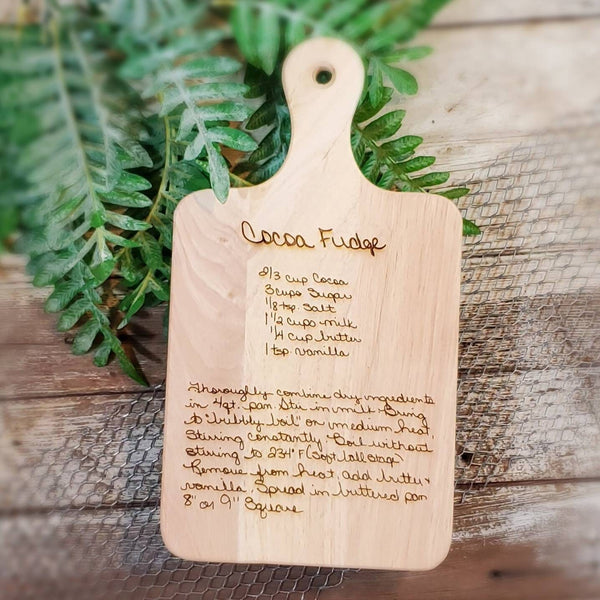 Cocoa Fudge
2/3 cup Cocoa
3 cups Sugar
1/8 tsp. Salt
1 1/2 cups milk
1/4 cup butter
1 tsp. vanilla
Thoroughly combine dry ingredients
in 4qt. pan. Stir in milk. Bring
to "bubbly boil" on medium heat,
Stirring constantly. Boil without
stirring to 234° F (Soft ball stage)
Remove from heat, add butter +
vanilla. Spread in buttered pan
8" or 9" Square